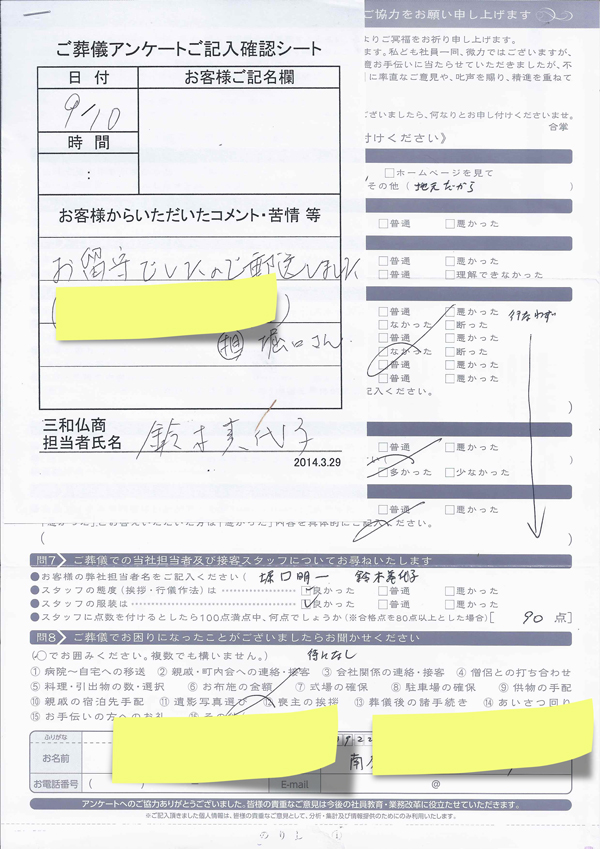 ご協力をお願い申し上げます
ご葬儀アンケートご記入確認シート
日付
お客様ご記名欄
9/10
時間
:
お客様からいただいたコメント・苦情 等
お留守でしたので郵送しました
(
)
担 堀口さん
三和仏商
担当者氏名
2014.3.29
よりご冥福をお祈り申し上げます。
ます。私ども社員一同、微力ではございますが、
お手伝いに当たらせていただきましたが、不
に率直なご意見や、叱声を賜り、精進を重ねて
ざいましたら、何なりとお申し付けくださいませ。
合掌
付けください》
□ホームページを見て
その他（地元だから）
□普通 □悪かった
□普通 □理解できなかった
□普通 □悪かった 行なわず
□なかった □断った
□普通 □悪かった
□なかった □断った
□普通 □悪かった
□普通 □悪かった
記入ください。
)
□普通 □悪かった
□多かった □少なかった
□普通 □悪かった
「悪かった」とお答えいただいた方は「悪かった」内容を具体的にご記入ください。
( )
問7 ご葬儀での当社担当者及び接客スタッフについてお尋ねいたします
●お客様の弊社担当者名をご記入ください（ 堀口明一 鈴木
●スタッフの態度（挨拶・行儀作法）は □良かった □普通 □悪かった
●スタッフの服装は □良かった □普通 □悪かった
●スタッフに点数を付けるとしたら100点満点中、何点でしょうか（※合格点を80点以上とした場合）[ 90 点]
問8 ご葬儀でお困りになったことがございましたらお聞かせください
(○でお囲みください。複数でも構いません。) 特になし
①病院～自宅への移送 ②親戚・町内会への連絡・接客 ③会社関係の連絡・接客 ④僧侶との打ち合わせ
⑤料理・引出物の数・選択 ⑥お布施の金額 ⑦式場の確保 ⑧駐車場の確保 ⑨供物の手配
⑩親戚の宿泊先手配 ⑪遺影写真選び ⑫喪主の挨拶 ⑬葬儀後の諸手続き ⑭あいさつ回り
⑮お手伝いの方へのお礼 ⑯その
ふりがな
お名前
南
お電話番号 (
E-mail @
アンケートへのご協力ありがとうございました。皆様の貴重なご意見は今後の社員教育・業務改革に役立たせていただきます。
※ご記入頂きました個人情報は、皆様の貴重なご意見として、分析・集計及び情報提供のためにのみ利用いたします。
のりしろ